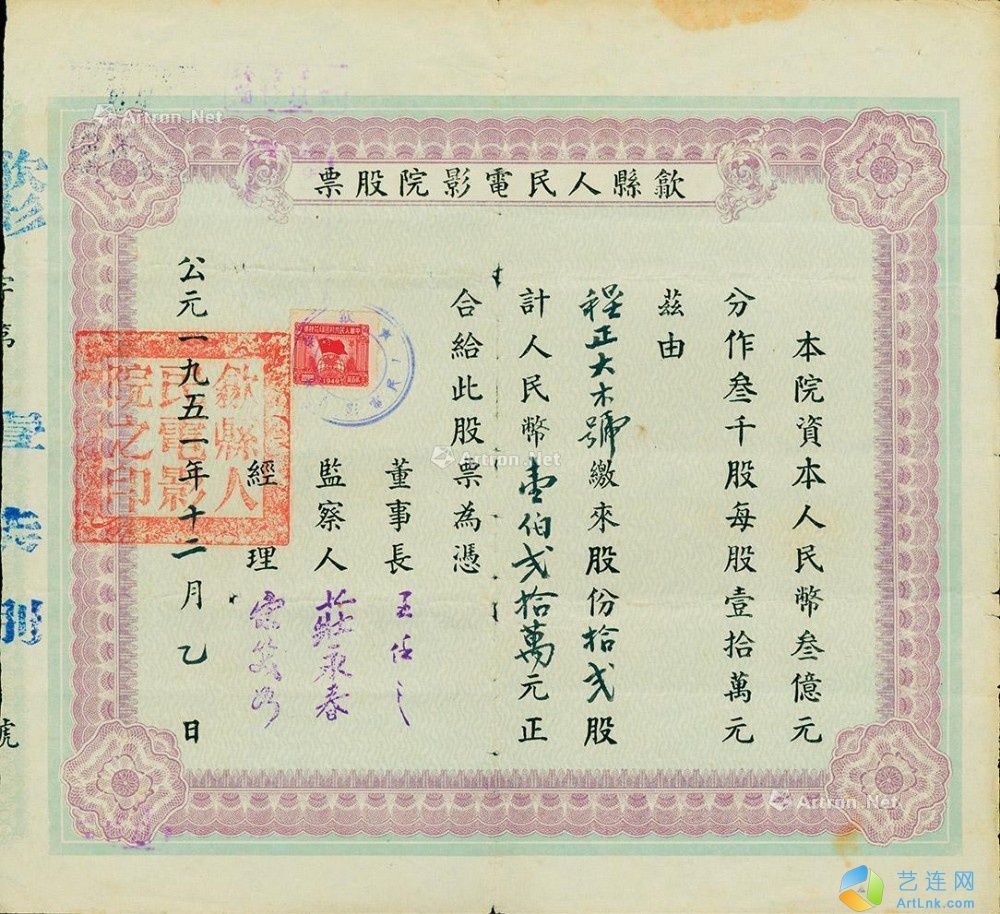 歙縣人民電影院股票
本院資本人民幣叁億元
分作叁千股每股壹拾萬元
茲由
程正大木號繳來股份拾弍股
計人民幣壹佰弍拾萬元正
合給此股票為憑
董事長 王任之
監察人 莊永春
經理
公元一九五一年十二月乙日
歙縣人
民電影
院之印
中華人民共和國印花稅票
1949
字第
號
Artron.Net
Artron.Net
Artron.Net
Artron.Net
艺连网
ArtLnk.com